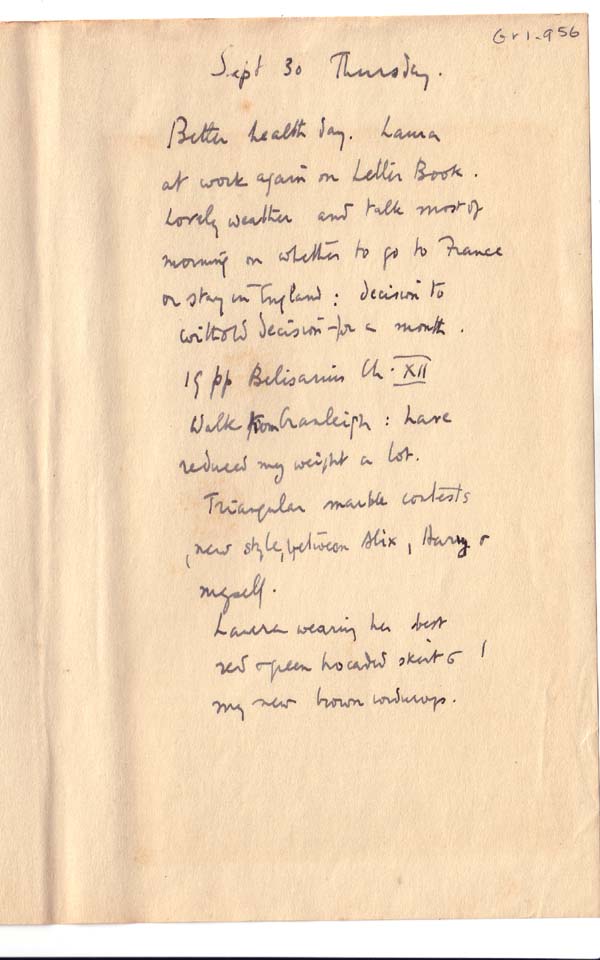 Gr1-956
Sept 30 Thursday.
Better health day. Laura
at work again on Letter Book.
Lovely weather and talk most of
morning on whether to go to France
or stay in England: decision to
withold decision for a month.
19 pp Belisarius Ch. XII
Walk from Cranleigh: have
reduced my weight a lot.
Triangular marble contests
, new style, between Alix, Harry &
myself.
Laura wearing her best
red & green brocaded skirt & I
my new brown corduroys.